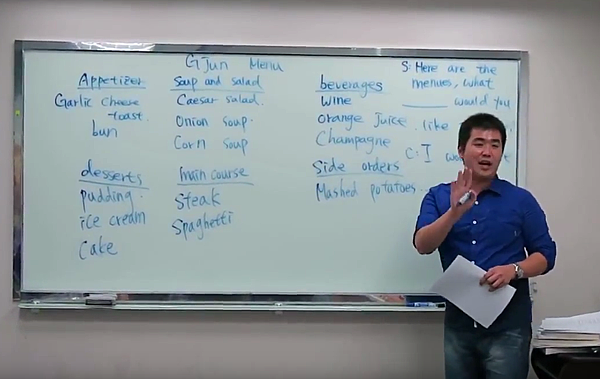 Gjun Menu
Appetizer
Garlic cheese
toast.
bun
Soup and salad
Caesar salad.
Onion soup.
Corn soup
beverages
Wine
Orange Juice
Champagne
Side orders
Mashed potatoes
desserts
pudding
ice cream
Cake
main course
Steak
Spaghetti
S: Here are the
menues, what
____ would you
like
C: I